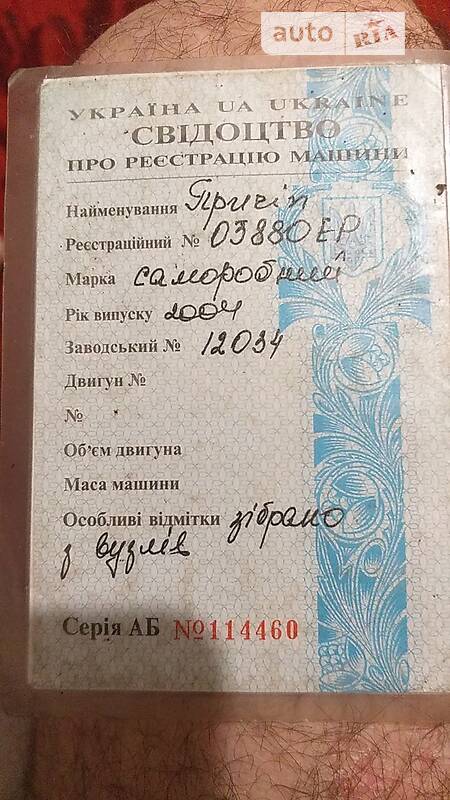 auto RIA
УКРАЇНА UA UKRAINE
СВІДОЦТВО
ПРО РЕЄСТРАЦІЮ МАШИНИ
Найменування Причіп
Реєстраційний № 03880ЕР
Марка саморобний
Рік випуску 2004
Заводський № 12034
Двигун №
№
Об'єм двигуна
Маса машини
Особливі відмітки зібрано
з вузлів
Серія АБ №114460